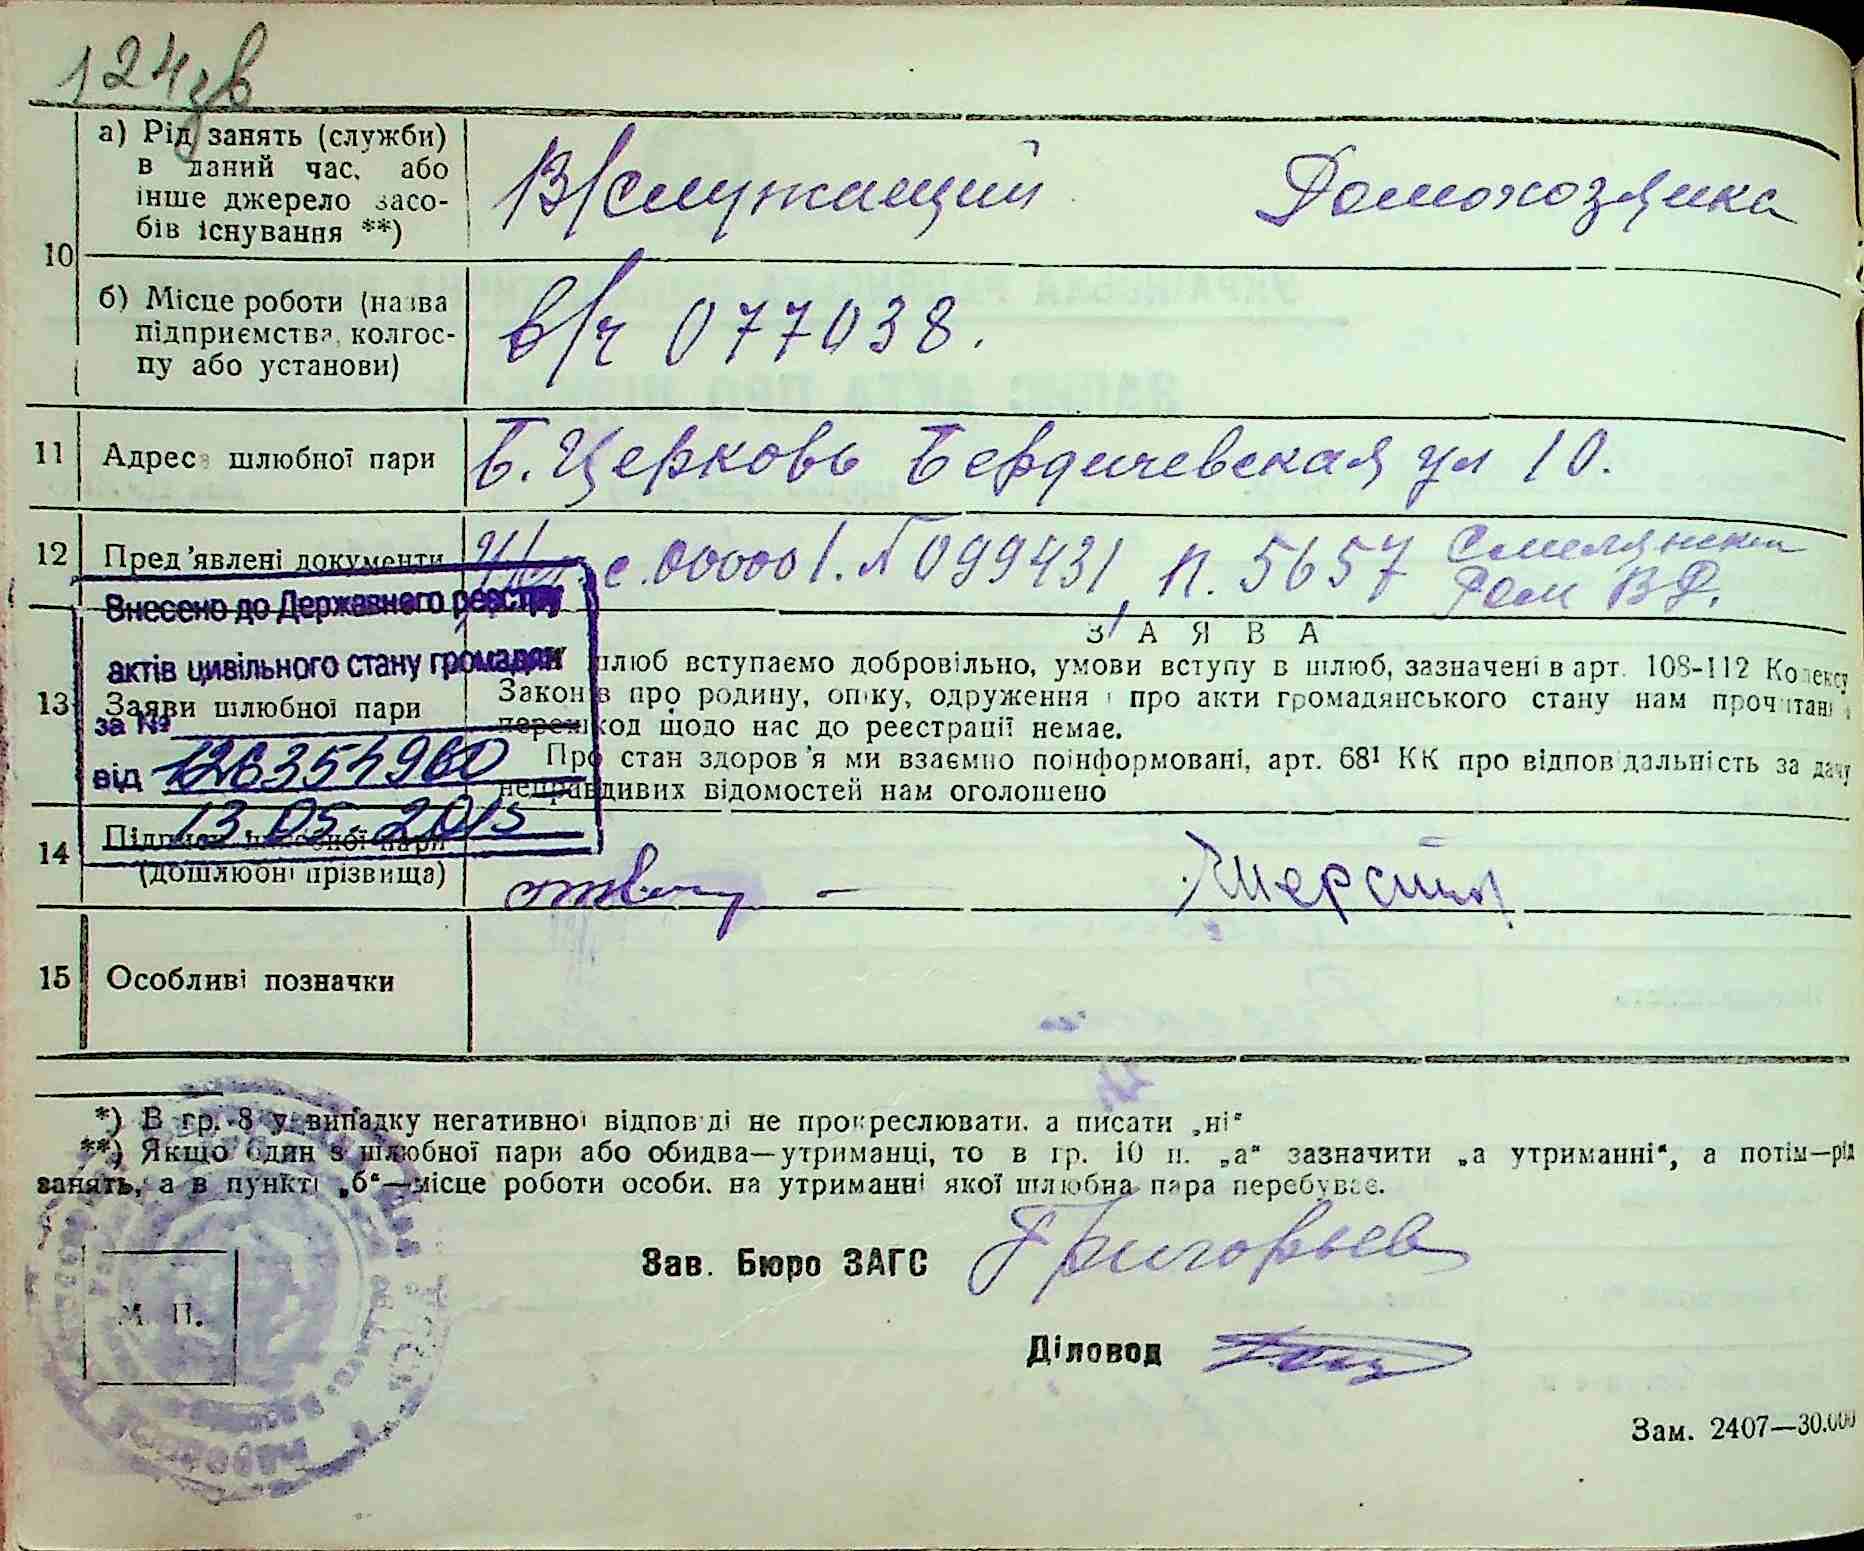 124 зв
10
а) Рід занять (служби)
в даний час, або
інше джерело засо-
бів існування **)
В/служащий Домохозяйка
б) Місце роботи (назва
підприємства, колгос-
пу або установи)
в/ч 077038.
11 Адреса шлюбної пари Б. Церковь Бердичевская ул 10.
12 Пред'явлені документи с. 00000 1. № 099431, п. 5657 Смелянским
Ром ВД.
Внесено до Державного реєстру
актів цивільного стану громадян
за №
126354960
від
13.05.2015
13 Заяви шлюбної пари
ЗАЯВА
шлюб вступаємо добровільно, умови вступу в шлюб, зазначені в арт. 108-112 Колексу
Законів про родину, опіку, одруження і про акти громадянського стану нам прочитані і
перешкод щодо нас до реєстрації немає.
Про стан здоров'я ми взаємно поінформовані, арт. 68¹ КК про відповідальність за дачу
неправдивих відомостей нам оголошено
14 Підписи шлюбної пари
(дошлюбні прізвища)
15 Особливі позначки
*) В гр. 8 у випадку негативної відповіді не прокреслювати, а писати „ні“
**) Якщо один з шлюбної пари або обидва—утриманці, то в гр. 10 п. „а“ зазначити „а утриманні“, а потім—рід
занять, а в пункті „б“—місце роботи особи, на утриманні якої шлюбна пара перебуває.
Зав. Бюро ЗАГС Григорьев
М. П.
Діловод
Зам. 2407—30.000